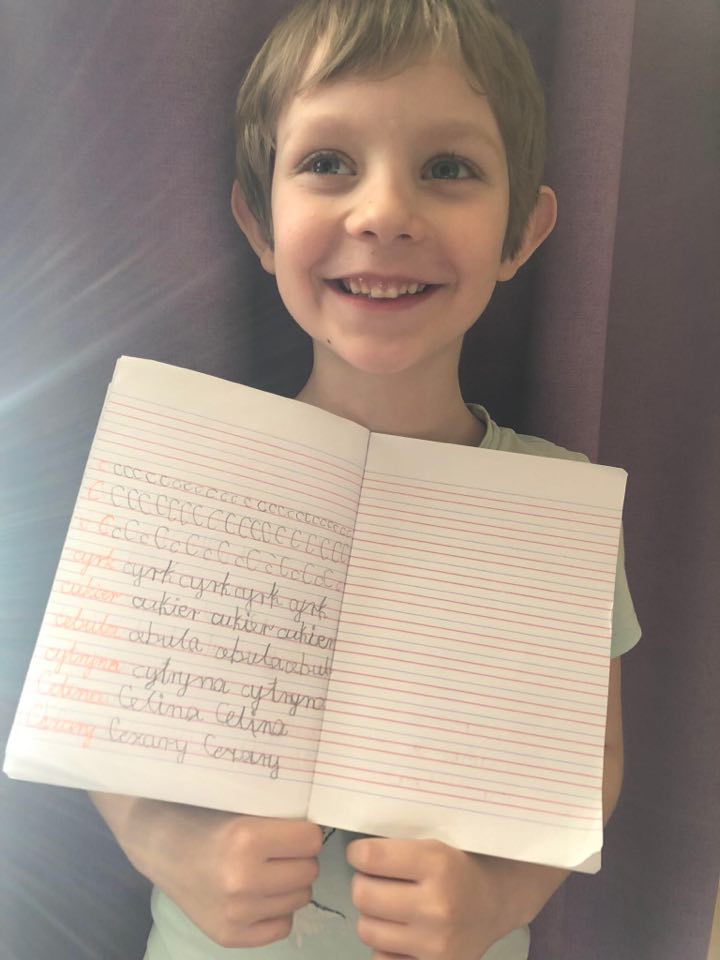 c c c c c c c c c c c c c c c c c c c c c c
C C C C C C C C C C C C C C C C C C
c C c C c C c C c C c C c C c C c
cyrk cyrk cyrk cyrk cyrk
cukier cukier cukier cukier
cebula cebula cebula cebul
cytryna cytryna cytryna
Celina Celina Celina
Cezary Cezary Cezary